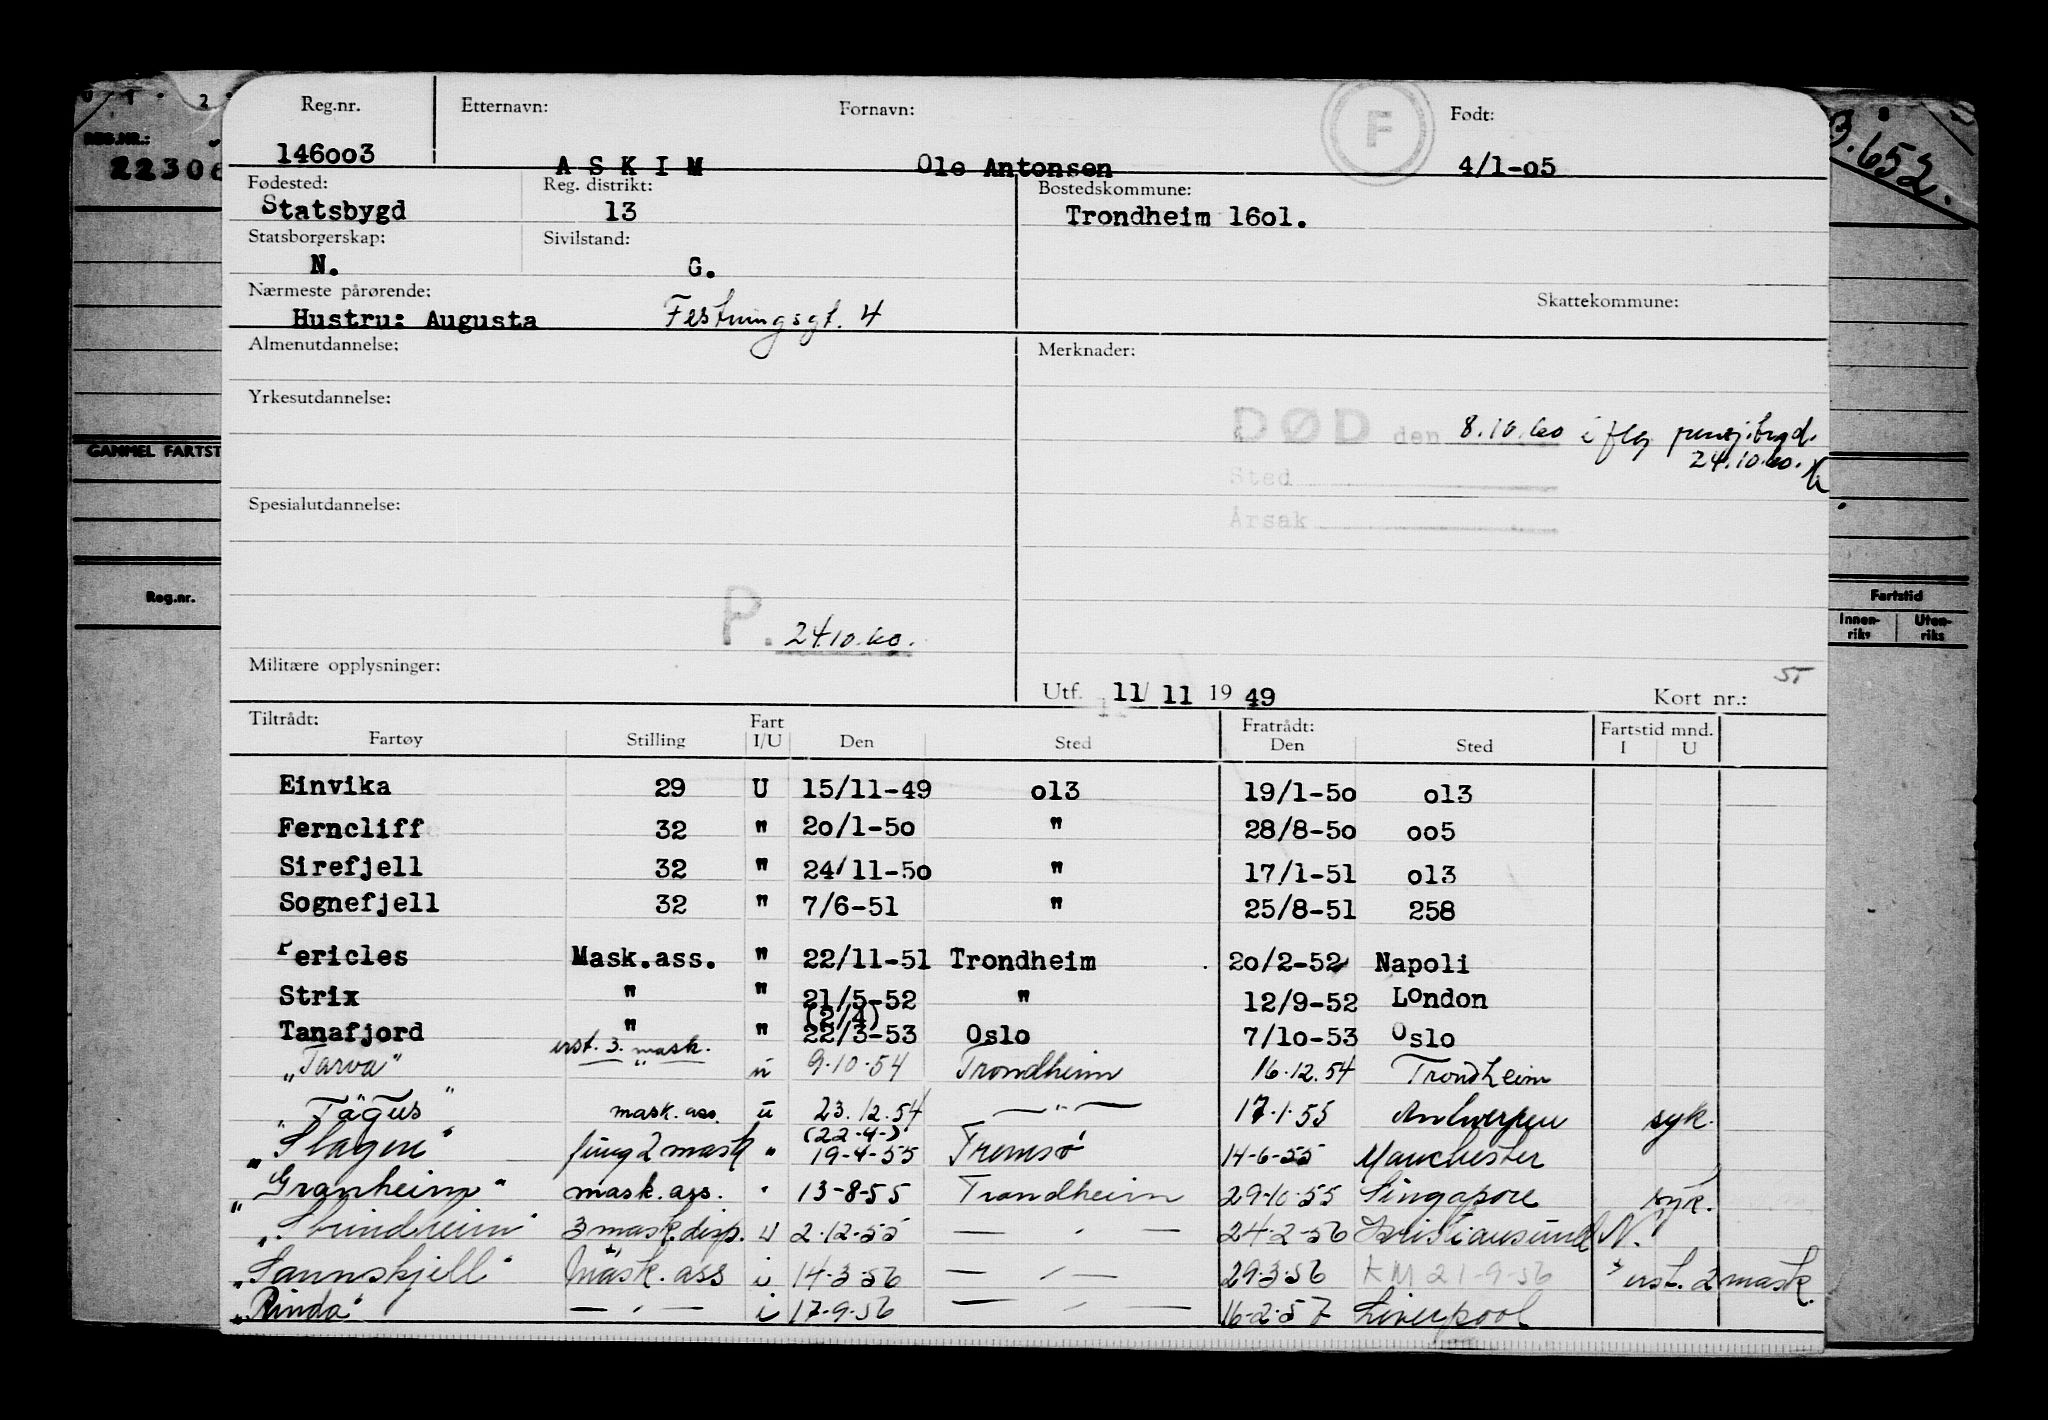 Reg.nr. Etternavn: Fornavn: F Født:
146oo3 A S K I M Ole Antonsen 4/1-o5
REG.NR.:
22306
3.652.
Fødested: Reg. distrikt: Bostedskommune:
Statsbygd 13 Trondheim 16o1.
Statsborgerskap: Sivilstand:
N. G.
Nærmeste pårørende: Skattekommune:
Hustru: Augusta Festningsgt. 4
Almenutdannelse: Merknader:
Yrkesutdannelse:
DØD den 8.10.60 i flg pensj.bygd.
24.10.60.
GAMMEL FARTST
Sted
Spesialutdannelse:
Årsak
Reg.nr. Fartstid
Innen-riks Uten-riks
P. 24.10.60.
Militære opplysninger:
Utf. 11/ 11 19 49 Kort nr.: 5
Tiltrådt: Fart Fratrådt: Fartstid mnd.
Fartøy Stilling I/U Den Sted Den Sted I U
Einvika 29 U 15/11-49 o13 19/1-5o o13
Ferncliff 32 " 2o/1-5o " 28/8-5o oo5
Sirefjell 32 " 24/11-5o " 17/1-51 o13
Sognefjell 32 " 7/6-51 " 25/8-51 258
Pericles Mask.ass. " 22/11-51 Trondheim 2o/2-52 Napoli
Strix " " 21/5-52 " 12/9-52 London
(2/4)
Tanafjord " " 22/3-53 Oslo 7/1o-53 Oslo
"Tarva" urst. 3. mask. u 9.10.54 Trondheim 16.12.54 Trondheim
"Tagus" mask. ass. u 23.12.54 — " — 17.1.55 Antwerpen syk.
(22-4-)
"Slagen" fung 2 mask " 19-4-55 Tromsø 14-6-55 Manchester
"Granheim" mask. ass. " 13-8-55 Trondheim 29-10-55 Singapore syk.
"Strindheim" 3 mask. disp. u 2-12-55 — " — 24-2-56 Kristiansund N.
"Sannskjell" Mask. ass i 14-3-56 — " — 29-3-56 KM 21-9-56 * urst. 2 mask.
"Rinda" — " — i 17-9-56 — " — 16-2-57 Liverpool